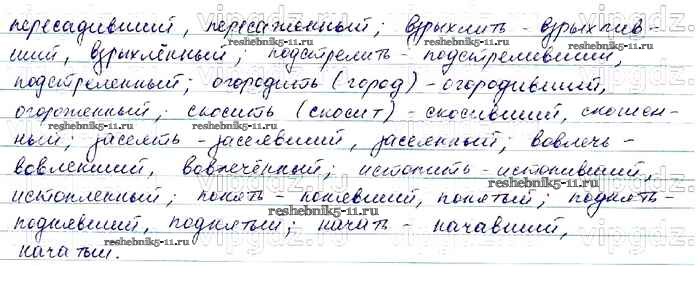 пересадивший, пересаженный; взрыхлить - взрыхлив-
ший, взрыхлённый; подстрелить - подстреливший,
подстреленный; огородить (город) - огородивший,
огороженный; скосить (скосит) - скосивший, скошен-
ный; засеять - засеявший, засеянный; вовлечь -
вовлекший, вовлечённый; истопить - истопивший,
истопленный; понять - понявший, понятый; поднять -
поднявший, поднятый; начать - начавший,
начатый.
reshebnik5-11.ru
reshebnik5-11.ru
reshebnik5-11.ru
reshebnik5-11.ru
reshebnik5-11.ru
reshebnik5-11.ru
reshebnik5-11.ru
vipgdz.ru